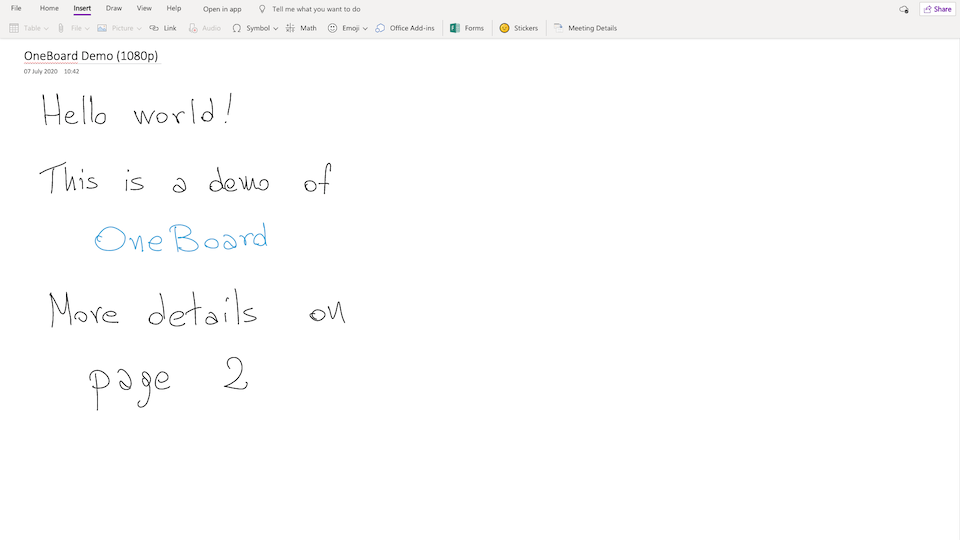 File Home Insert Draw View Help Open in app Tell me what you want to do Share
Table File Picture Link Audio Symbol Math Emoji Office Add-ins Forms Stickers Meeting Details
OneBoard Demo (1080p)
07 July 2020 10:42
Hello world!
This is a demo of
OneBoard
More details on
page 2